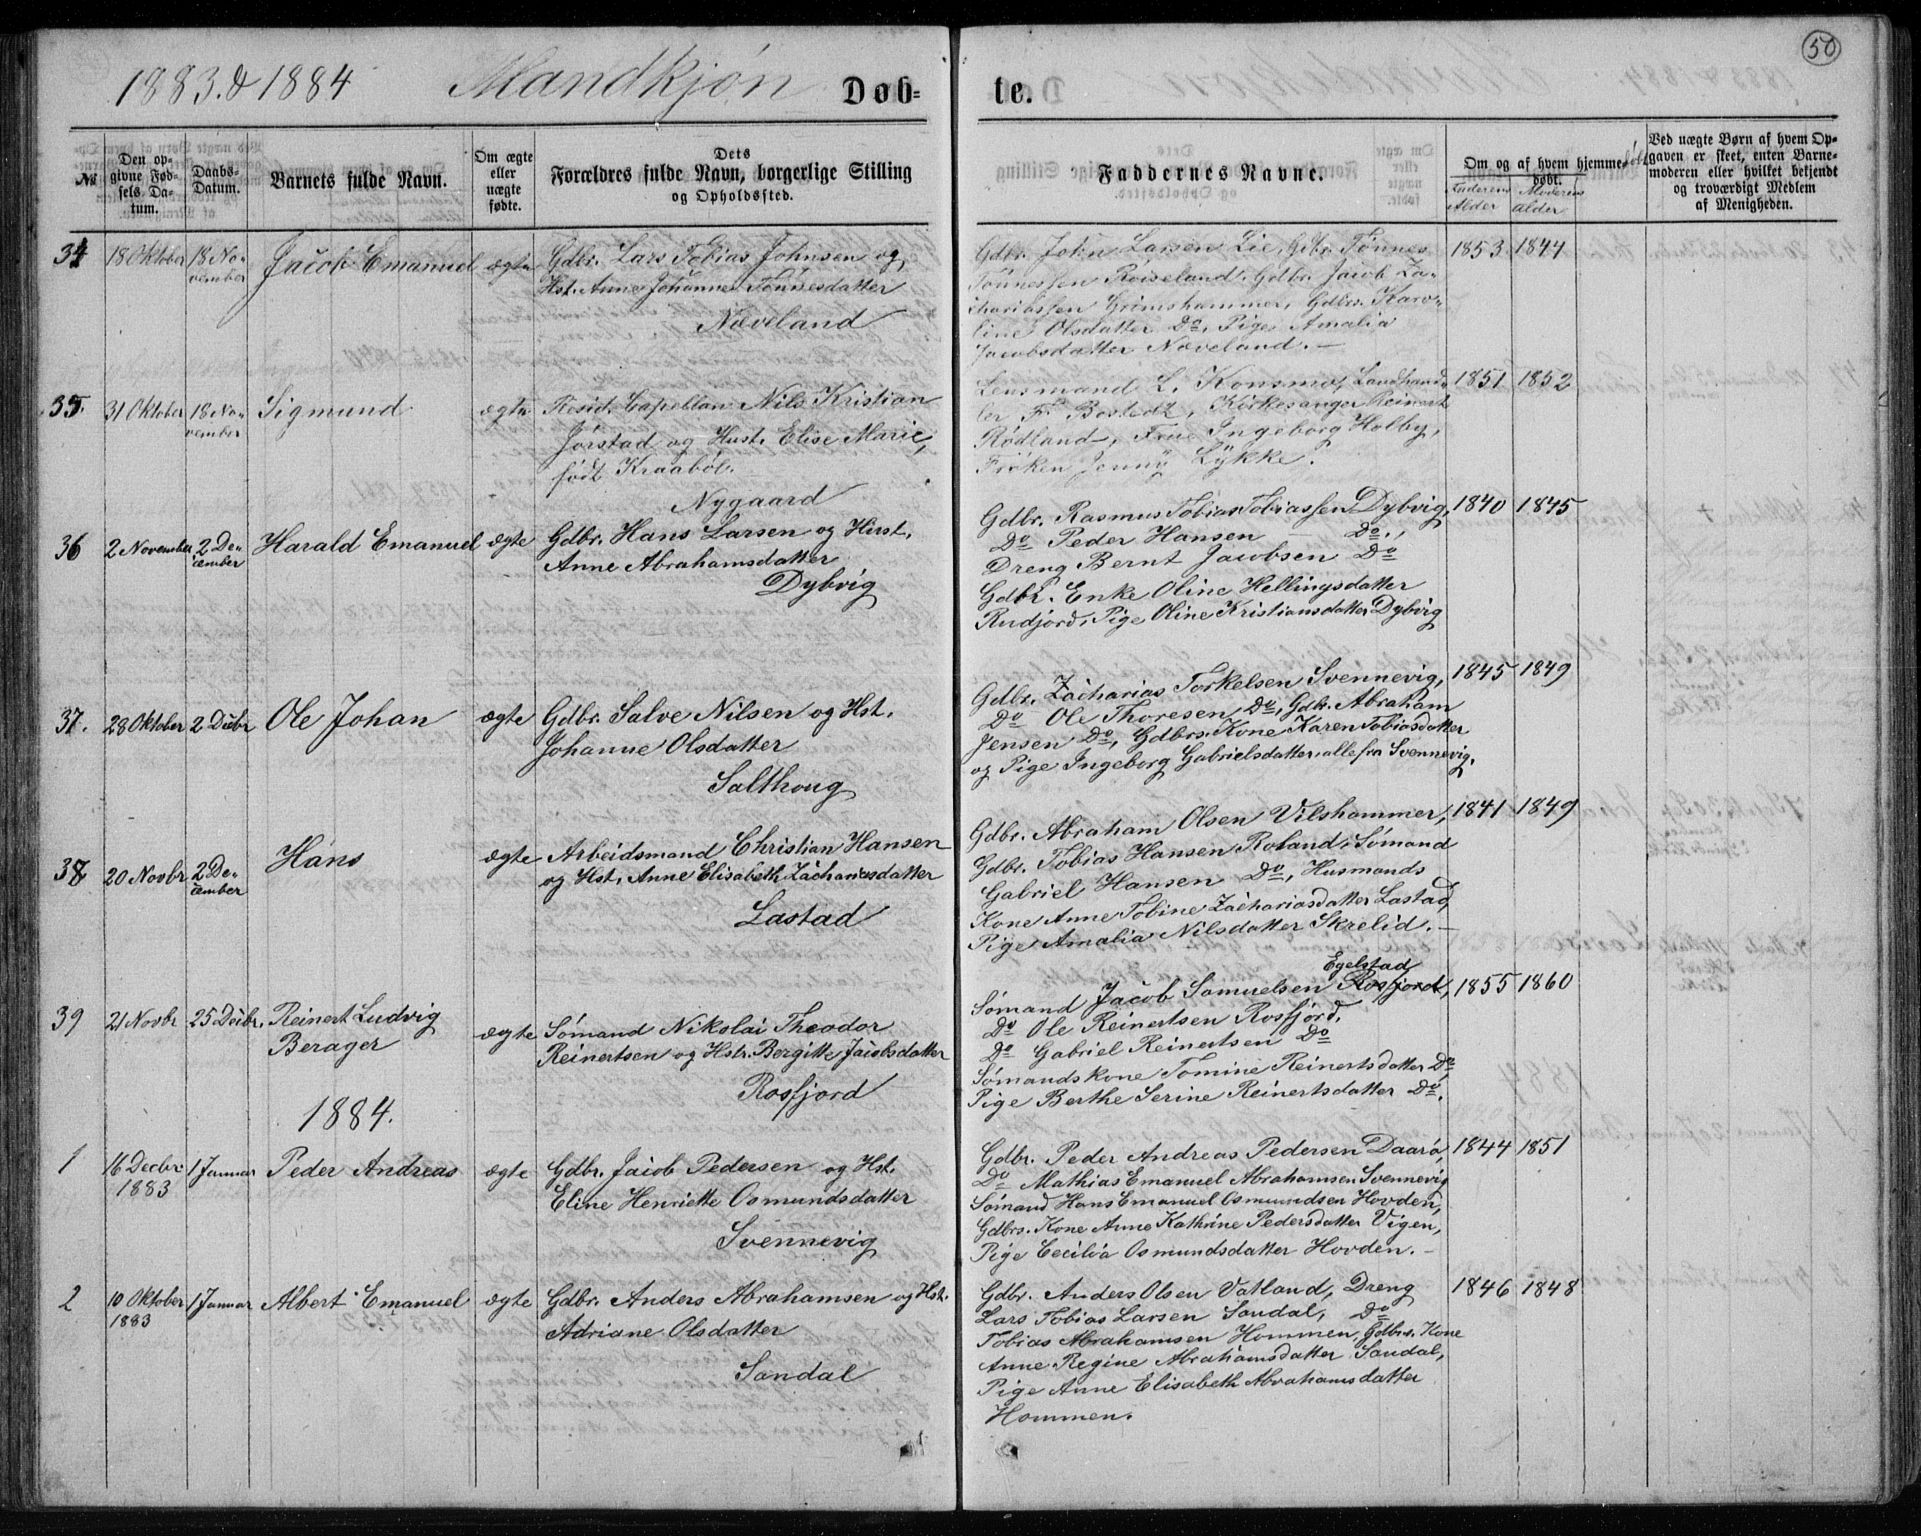 50
1883. & 1884 Mandkjón Døb= te.
№
Den op-
givne Fød-
sels Da-
tum.
Daabs-
Datum.
Barnets fulde Navn.
Om ægte
eller
uægte
fødte.
Dets
Forældres fulde Navn, borgerlige Stilling
og Opholdssted.
Faddernes Navne.
Om og af hvem hjemme-
døbt.
Faderens
Alder
Moderens
alder
Ved uægte Børn af hvem Op-
gaven er skeet, enten Barne-
moderen eller hvilket bekjendt
og troværdigt Medlem
af Menigheden.
34 18 Oktober 18 No-
vember
Jacob Emanuel ægte
Gdbr. Lars Tobias Johnsen og
Hst. Anne Johanne Tønnesdatter
Næveland
Gdbr. John Larsen Lie, Gdbr. Tønnes
Tønnessen Røiseland, Gdbr. Jacob Za-
chariassen Grimshammer, Gdbrs. Karo-
line Olsdatter Do, Pige Amalia
Jacobsdatter Næveland. —
1853 1844
35. 31 Oktober 18 No-
vember
Sigmund ægte
Resid. Capellan Nils Kristian
Jørstad og Hust. Elise Marie,
født Kraabøl.
Nygaard
Lensmand L. Konsmo, Landhand-
ler F. Bostedt, Kirkesanger Reinert
Rødland, Frue Ingeborg Holby,
Frøken Jenny Lykke.
1851 1852
36 2 November 2 De-
cember
Harald Emanuel ægte
Gdbr. Hans Larsen og Hust.
Anne Abrahamsdatter
Dybvig
Gdbr. Rasmus Tobias Tobiassen Dybvig,
Do Peder Hansen Do,
Dreng Bernt Jacobsen Do
Gdbr. Enke Oline Hellingsdatter
Rudjord, Pige Oline Kristiansdatter Dybvig
1840 1845
37. 28 Oktober 2 Decbr
Ole Johan ægte
Gdbr. Salve Nilsen og Hst.
Johanne Olsdatter
Salthoug
Gdbr. Zacharias Torkelsen Svennevig,
Do Ole Thoresen, Do, Gdbr. Abraham
Jensen Do, Gdbrs. Kone Karen Tobiasdatter
og Pige Ingeborg Gabrielsdatter, alle fra Svennevig.
1845 1849
38 20 Novbr 2 De-
cember
Hans ægte
Arbeidsmand Christian Hansen
og Hst. Anne Elisabeth Zachariasdatter
Lastad
Gdbr. Abraham Olsen Vilshammer,
Gdbr. Tobias Hansen Roland, Sømand
Gabriel Hansen Do, Husmands
Kone Anne Tobine Zachariasdatter Lastad,
Pige Amalia Nilsdatter Skrelid. —
1841 1849
39 21 Novbr 25 Decbr.
Reinert Ludvig
Berager
ægte
Sømand Nikolai Theodor
Reinertsen og Hstr. Bergitte Jacobsdatter
Rosfjord
Egelstad
Sømand Jacob Samuelsen Rosfjord,
Do Ole Reinertsen Rosfjord,
Do Gabriel Reinertsen Do
Sømandskone Tomine Reinertsdatter Do,
Pige Berthe Serine Reinertsdatter Do.
1855 1860
1884.
1 16 Decbr
1883
1 Januar
Peder Andreas ægte
Gdbr. Jacob Pedersen og Hst.
Eline Henriette Osmundsdatter
Svennevig
Gdbr. Peder Andreas Pedersen Daarø,
Do Mathias Emanuel Abrahamsen Svennevig
Sømand Hans Emanuel Osmundsen Hovden,
Gdbrs. Kone Anne Kathrine Pedersdatter Vigen,
Pige Cecilia Osmundsdatter Hovden. —
1844 1851
2 10 Oktober
1883
1 Januar
Albert Emanuel ægte
Gdbr. Anders Abrahamsen og Hst.
Adriane Olsdatter
Sandal
Gdbr. Anders Olsen Vatland, Dreng
Lars Tobias Larsen Sandal, Do
Tobias Abrahamsen Hommen, Gdbrs. Kone
Anne Regine Abrahamsdatter Sandal,
Pige Anne Elisabeth Abrahamsdatter
Hommen.
1846 1848